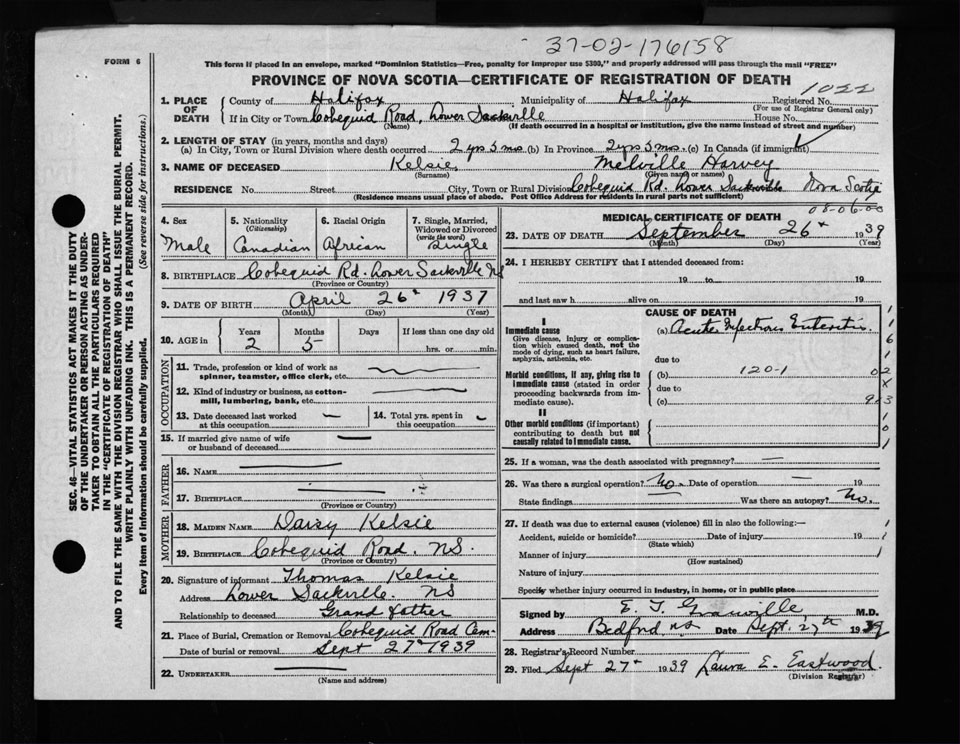 37-02-176158
FORM 6
This form if placed in an envelope, marked "Dominion Statistics—Free, penalty for improper use $300," and properly addressed will pass through the mail "FREE"
PROVINCE OF NOVA SCOTIA—CERTIFICATE OF REGISTRATION OF DEATH
1022
1. PLACE OF DEATH
County of Halifax Municipality of Halifax Registered No.
(For use of Registrar General only)
If in City or Town Cobequid Road, Lower Sackville House No.
(Name) (If death occurred in a hospital or institution, give the name instead of street and number)
2. LENGTH OF STAY (in years, months and days)
(a) In City, Town or Rural Division where death occurred 2 yrs 5 mos. (b) In Province 2 yrs 5 mos. (c) In Canada (if immigrant)
3. NAME OF DECEASED Kelsie Melville Harvey
(Surname) (Given name or names)
RESIDENCE No. Street City, Town or Rural Division Cobequid Rd. Lower Sackville Nova Scotia
(Residence means usual place of abode. Post Office Address for residents in rural parts not sufficient)
08-06-00
4. Sex Male
5. Nationality (Citizenship) Canadian
6. Racial Origin African
7. Single, Married, Widowed or Divorced (write the word) Single
8. BIRTHPLACE Cobequid Rd. Lower Sackville NS
(Province or Country)
9. DATE OF BIRTH April 26th 1937
(Month) (Day) (Year)
10. AGE in Years Months Days If less than one day old
2 5 hrs. or min.
OCCUPATION
11. Trade, profession or kind of work as spinner, teamster, office clerk, etc.
12. Kind of industry or business, as cotton-mill, lumbering, bank, etc.
13. Date deceased last worked at this occupation
14. Total yrs. spent in this occupation
15. If married give name of wife or husband of deceased
FATHER
16. NAME
17. BIRTHPLACE
(Province or Country)
MOTHER
18. MAIDEN NAME Daisy Kelsie
19. BIRTHPLACE Cobequid Road. NS.
(Province or Country)
20. Signature of informant Thomas Kelsie
Address Lower Sackville. NS
Relationship to deceased Grand father
21. Place of Burial, Cremation or Removal Cobequid Road Cem-
Date of burial or removal Sept 27th 1939
22. UNDERTAKER
(Name and address)
MEDICAL CERTIFICATE OF DEATH
23. DATE OF DEATH September 26th 1939
(Month) (Day) (Year)
24. I HEREBY CERTIFY that I attended deceased from:
19 to 19
and last saw h alive on 19
CAUSE OF DEATH
I
Immediate cause
Give disease, injury or complication which caused death, not the mode of dying, such as heart failure, asphyxia, asthenia, etc.
(a) Acute Infectious Enteritis.
due to
Morbid conditions, if any, giving rise to immediate cause (stated in order proceeding backwards from immediate cause).
(b) 120-1
due to
(c)
II
Other morbid conditions (if important) contributing to death but not causally related to immediate cause.
25. If a woman, was the death associated with pregnancy?
26. Was there a surgical operation? No. Date of operation
State findings Was there an autopsy? No.
27. If death was due to external causes (violence) fill in also the following:—
Accident, suicide or homicide? Date of injury 19
(State which)
Manner of injury
(How sustained)
Nature of injury
Specify whether injury occurred in industry, in home, or in public place
Signed by E. T. Granville M.D.
Address Bedford N.S. Date Sept. 27th 1939
28. Registrar's Record Number
29. Filed Sept 27th 1939 Laura E. Eastwood.
(Division Registrar)
SEC. 46—VITAL STATISTICS ACT MAKES IT THE DUTY
OF THE UNDERTAKER OR PERSON ACTING AS UNDER-
TAKER TO OBTAIN ALL THE PARTICULARS REQUIRED
IN THE "CERTIFICATE OF REGISTRATION OF DEATH"
AND TO FILE THE SAME WITH THE DIVISION REGISTRAR WHO SHALL ISSUE THE BURIAL PERMIT.
WRITE PLAINLY WITH UNFADING INK. THIS IS A PERMANENT RECORD.
Every item of Information should be carefully supplied. (See reverse side for instructions.)